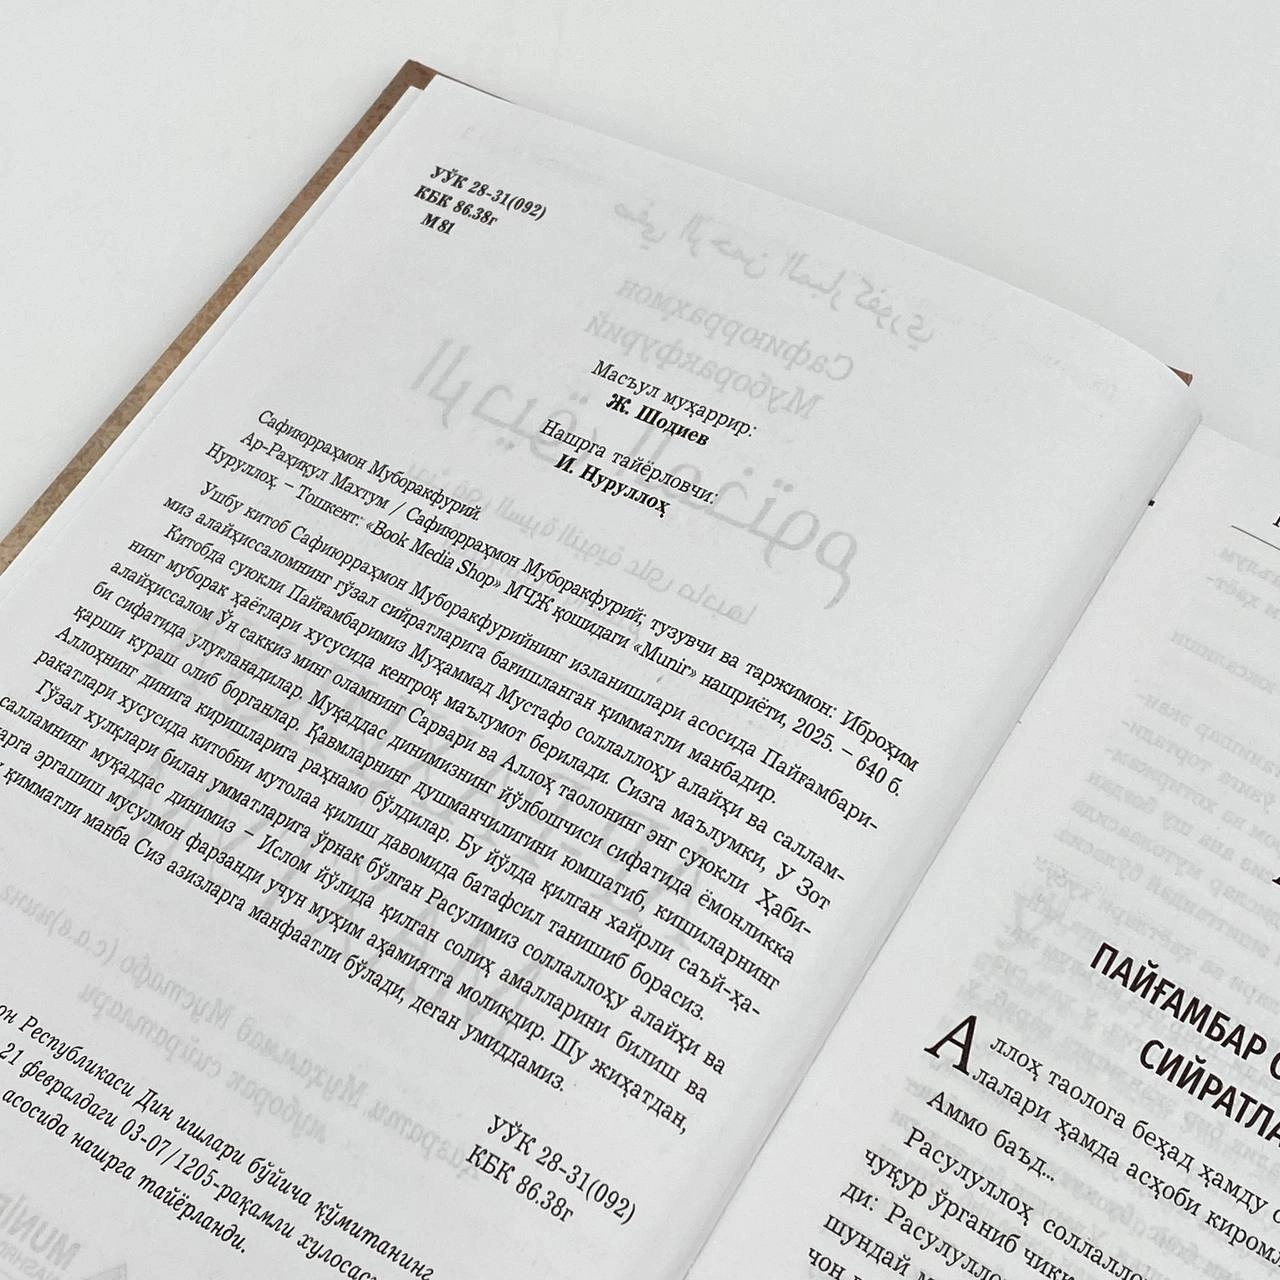 УЎК 28-31(092)
КБК 86.38г
М 81
Масъул муҳаррир:
Ж. Шодиев
Нашрга тайёрловчи:
И. Нуруллоҳ
Сафиюрраҳмон Муборакфурий.
Ар-Раҳиқул Махтум / Сафиюрраҳмон Муборакфурий; тузувчи ва таржимон: Иброҳим
Нуруллоҳ. – Тошкент: «Book Media Shop» МЧЖ қошидаги «Munir» нашриёти, 2025. – 640 б.
Ушбу китоб Сафиюрраҳмон Муборакфурийнинг изланишлари асосида Пайғамбари-
миз алайҳиссаломнинг гўзал сийратларига бағишланган қимматли манбадир.
Китобда суюкли Пайғамбаримиз Муҳаммад Мустафо соллаллоҳу алайҳи ва саллам-
нинг муборак ҳаётлари хусусида кенгроқ маълумот берилади. Сизга маълумки, У Зот
алайҳиссалом Ўн саккиз минг оламнинг Сарвари ва Аллоҳ таолонинг энг суюкли Ҳаби-
би сифатида улуғланадилар. Муқаддас динимизнинг йўлбошчиси сифатида ёмонликка
қарши кураш олиб борганлар. Қавмларнинг душманчилигини юмшатиб, кишиларнинг
Аллоҳнинг динига киришларига раҳнамо бўлдилар. Бу йўлда қилган хайрли саъй-ҳа-
ракатлари хусусида китобни мутолаа қилиш давомида батафсил танишиб борасиз.
Гўзал хулқлари билан умматларига ўрнак бўлган Расулимиз соллаллоҳу алайҳи ва
салламнинг муқаддас динимиз – Ислом йўлида қилган солиҳ амалларини билиш ва
эргашиш мусулмон фарзанди учун муҳим аҳамиятга моликдир. Шу жиҳатдан,
қимматли манба Сиз азизларга манфаатли бўлади, деган умиддамиз.
УЎК 28-31(092)
КБК 86.38г
Республикаси Дин ишлари бўйича қўмитанинг
21 февралдаги 03-07/1205-рақамли хулосаси
асосида нашрга тайёрланди.
ПАЙҒАМБАР
СИЙРАТЛА
Аллоҳ таолога беҳад ҳамду
лалари ҳамда асҳоби киром
Аммо баъд...
Расулуллоҳ соллалло
чуқур ўрганиб чиқи
ди: Расулулло
шундай м